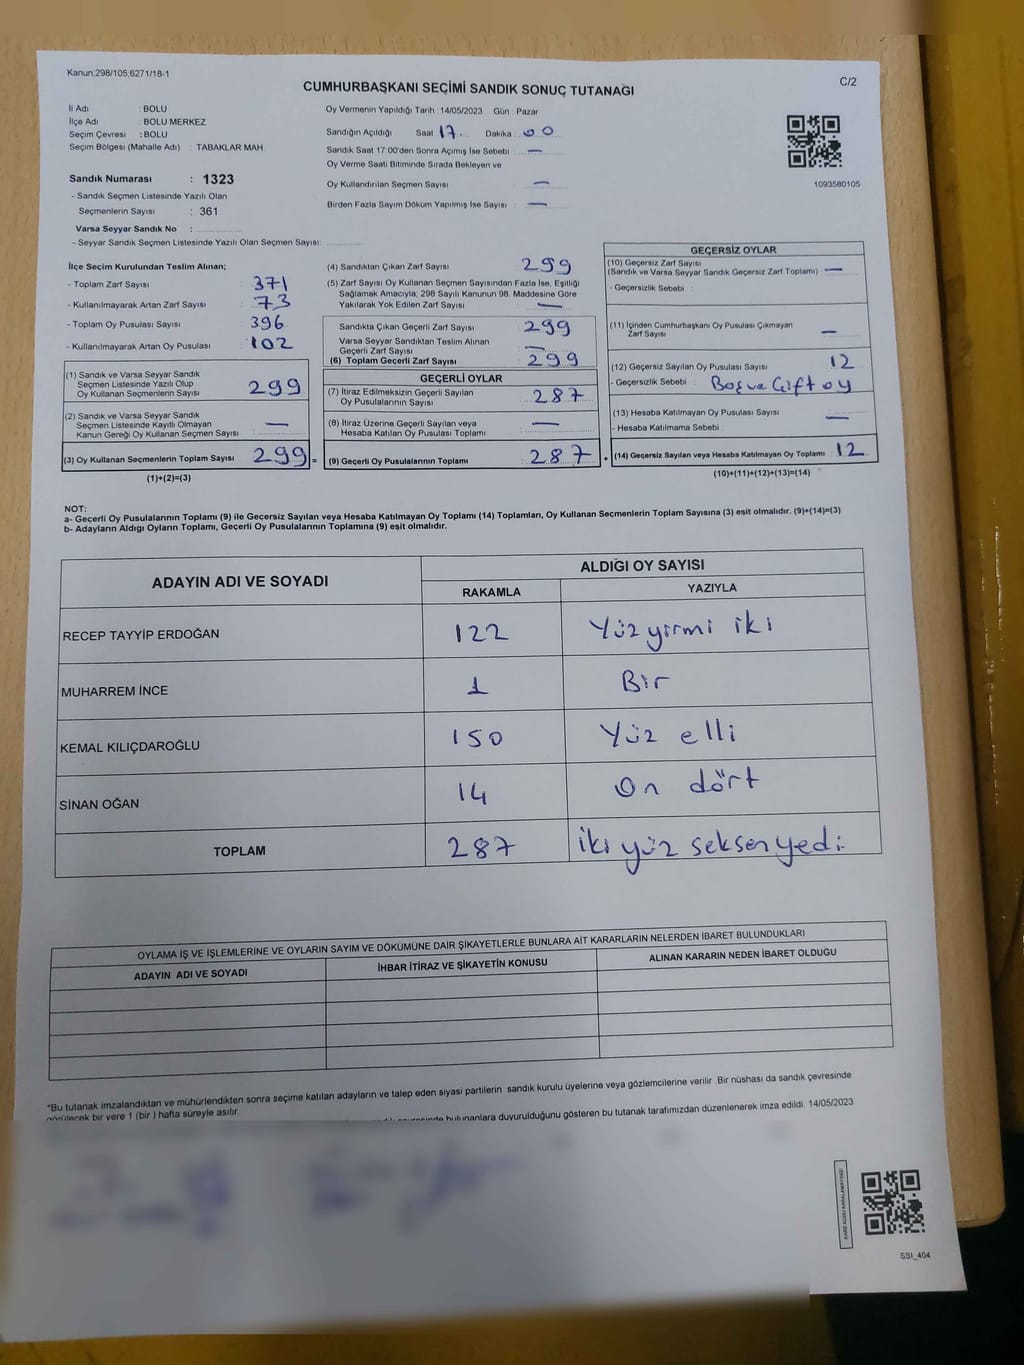 Kanun;298/105;6271/18-1
C/2
CUMHURBAŞKANI SEÇİMİ SANDIK SONUÇ TUTANAĞI
İl Adı : BOLU
İlçe Adı : BOLU MERKEZ
Seçim Çevresi : BOLU
Seçim Bölgesi (Mahalle Adı) : TABAKLAR MAH
Sandık Numarası : 1323
- Sandık Seçmen Listesinde Yazılı Olan
Seçmenlerin Sayısı : 361
Varsa Seyyar Sandık No :
- Seyyar Sandık Seçmen Listesinde Yazılı Olan Seçmen Sayısı:
Oy Vermenin Yapıldığı Tarih : 14/05/2023 Gün : Pazar
Sandığın Açıldığı Saat 17. Dakika : 00
Sandık Saat 17:00'den Sonra Açımış İse Sebebi : —
Oy Verme Saati Bitiminde Sırada Bekleyen ve
Oy Kullandırılan Seçmen Sayısı —
Birden Fazla Sayım Döküm Yapılmış İse Sayısı : —
1093580105
İlçe Seçim Kurulundan Teslim Alınan;
- Toplam Zarf Sayısı : 371
- Kullanılmayarak Artan Zarf Sayısı : 73
- Toplam Oy Pusulası Sayısı : 396
- Kullanılmayarak Artan Oy Pusulası : 102
(1) Sandık ve Varsa Seyyar Sandık
Seçmen Listesinde Yazılı Olup
Oy Kullanan Seçmenlerin Sayısı : 299
(2) Sandık ve Varsa Seyyar Sandık
Seçmen Listesinde Kayıtlı Olmayan
Kanun Gereği Oy Kullanan Seçmen Sayısı : —
(3) Oy Kullanan Seçmenlerin Toplam Sayısı : 299 =
(1)+(2)=(3)
(4) Sandıktan Çıkan Zarf Sayısı : 299
(5) Zarf Sayısı Oy Kullanan Seçmen Sayısından Fazla İse, Eşitliği
Sağlamak Amacıyla, 298 Sayılı Kanunun 98. Maddesine Göre
Yakılarak Yok Edilen Zarf Sayısı : —
Sandıkta Çıkan Geçerli Zarf Sayısı : 299
Varsa Seyyar Sandıktan Teslim Alınan
Geçerli Zarf Sayısı : —
(6) Toplam Geçerli Zarf Sayısı : 299
GEÇERLİ OYLAR
(7) İtiraz Edilmeksizin Geçerli Sayılan
Oy Pusulalarının Sayısı : 287
(8) İtiraz Üzerine Geçerli Sayılan veya
Hesaba Katılan Oy Pusulası Toplamı : —
(9) Geçerli Oy Pusulalarının Toplamı : 287 +
GEÇERSİZ OYLAR
(10) Geçersiz Zarf Sayısı
(Sandık ve Varsa Seyyar Sandık Geçersiz Zarf Toplamı) : —
- Geçersizlik Sebebi :
(11) İçinden Cumhurbaşkanı Oy Pusulası Çıkmayan
Zarf Sayısı : —
(12) Geçersiz Sayılan Oy Pusulası Sayısı : 12
- Geçersizlik Sebebi : Boş ve Çift oy
(13) Hesaba Katılmayan Oy Pusulası Sayısı : —
- Hesaba Katılmama Sebebi :
(14) Geçersiz Sayılan veya Hesaba Katılmayan Oy Toplamı : 12
(10)+(11)+(12)+(13)=(14)
NOT:
a- Geçerli Oy Pusulalarının Toplamı (9) ile Geçersiz Sayılan veya Hesaba Katılmayan Oy Toplamı (14) Toplamları, Oy Kullanan Seçmenlerin Toplam Sayısına (3) eşit olmalıdır. (9)+(14)=(3)
b- Adayların Aldığı Oyların Toplamı, Geçerli Oy Pusulalarının Toplamına (9) eşit olmalıdır.
ADAYIN ADI VE SOYADI ALDIĞI OY SAYISI
RAKAMLA YAZIYLA
RECEP TAYYİP ERDOĞAN 122 Yüz yirmi iki
MUHARREM İNCE 1 Bir
KEMAL KILIÇDAROĞLU 150 Yüz elli
SİNAN OĞAN 14 On dört
TOPLAM 287 iki yüz seksen yedi
OYLAMA İŞ VE İŞLEMLERİNE VE OYLARIN SAYIM VE DÖKÜMÜNE DAİR ŞİKAYETLERLE BUNLARA AİT KARARLARIN NELERDEN İBARET BULUNDUKLARI
ADAYIN ADI VE SOYADI İHBAR İTİRAZ VE ŞİKAYETİN KONUSU ALINAN KARARIN NEDEN İBARET OLDUĞU
*Bu tutanak imzalandıktan ve mühürlendikten sonra seçime katılan adayların ve talep eden siyasi partilerin sandık kurulu üyelerine veya gözlemcilerine verilir. Bir nüshası da sandık çevresinde
görülecek bir yere 1 (bir) hafta süreyle asılır.
bulunanlara duyurulduğunu gösteren bu tutanak tarafımızdan düzenlenerek imza edildi. 14/05/2023
KARE KODU KARALAMAYINIZ!
SSI_404